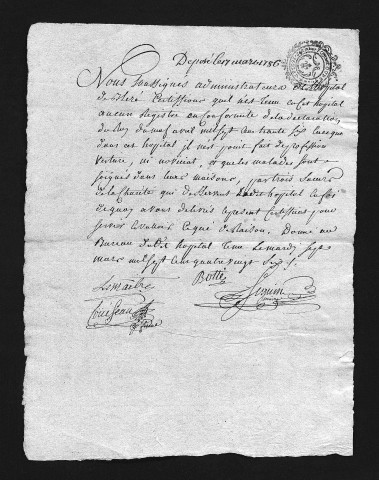 Deposé le 17 mars 1786
Nous soussignes administrateurs de l'hopital
de certiffions quil n'est tenu en cet hopital
aucun Registre en Conformité de la declaration
du Roy du neuf avril mil sept cent trente six lorsque
dans cet hopital il n'est point fait de proffession
vesture, ni noviciat, et que les malades sont
soignés dans leurs maisons, par trois sœurs
de la Charité qui desservent ledit hopital en foi
dequoy avons delivré le present certifficat pour
servir et valloir ce que de Raison. Donné au
Bureau dudit hopital tenu le mardy sept
mars mil sept cent quatre vingt six
Lemaitre Botté